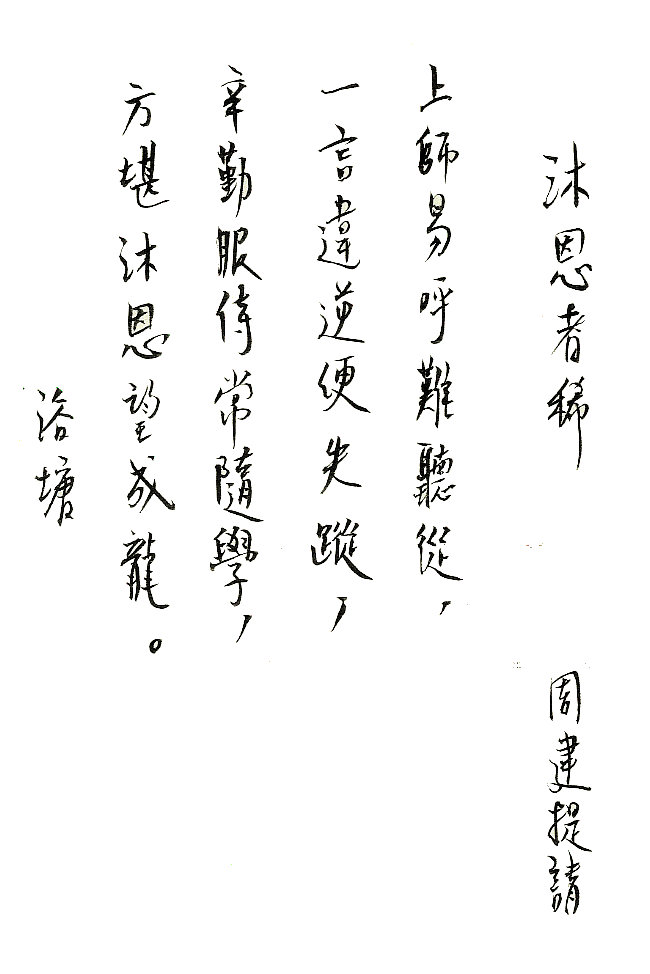 沐恩者稀
周建提請
上師易呼難聽從，
一言違逆便失蹤，
辛勤服侍常隨學，
方堪沐恩望成龍。
浴塘